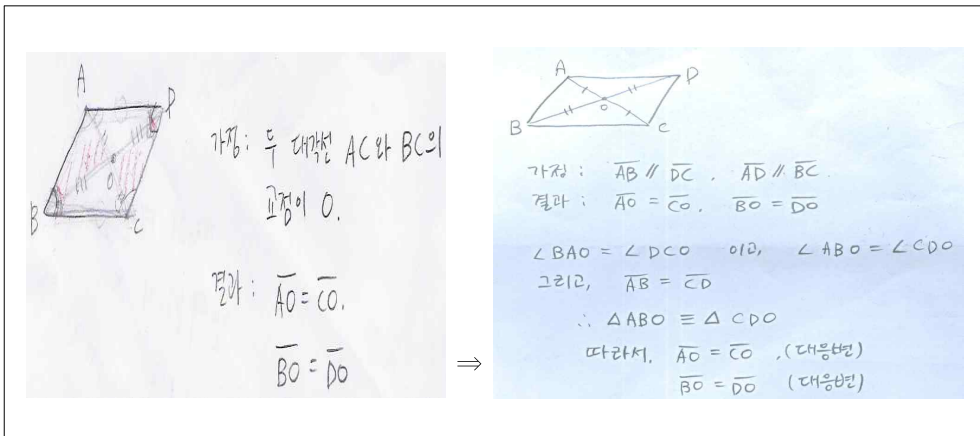 A
D
B
C
O
가정: 두 대각선 AC와 BC의
교점이 O.
결과: AO = CO.
BO = DO
⇒
A
D
B
C
O
가정: AB // DC, AD // BC.
결과: AO = CO, BO = DO
∠BAO = ∠DCO 이고, ∠ABO = ∠CDO
그리고, AB = CD
∴ △ABO ≡ △CDO
따라서, AO = CO, (대응변)
BO = DO (대응변)